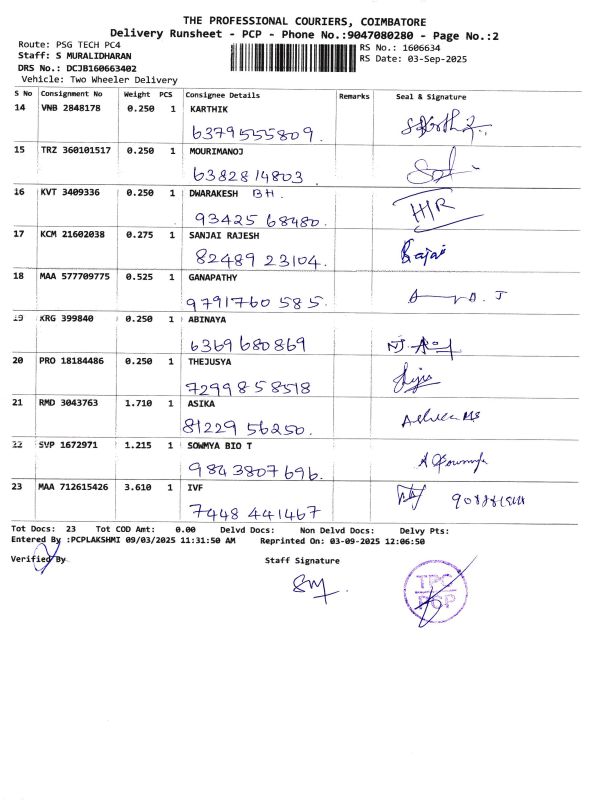 THE PROFESSIONAL COURIERS, COIMBATORE
Delivery Runsheet - PCP - Phone No.:9047080280 - Page No.:2
Route: PSG TECH PC4 RS No.: 1606634
Staff: S MURALIDHARAN RS Date: 03-Sep-2025
DRS No.: DCJB160663402
Vehicle: Two Wheeler Delivery
S No Consignment No Weight PCS Consignee Details Remarks Seal & Signature
14 VNB 2848178 0.250 1 KARTHIK
6379555809.
15 TRZ 360101517 0.250 1 MOURIMANOJ
6382814803.
16 KVT 3409336 0.250 1 DWARAKESH BH. HIR
93425 68480.
17 KCM 21602038 0.275 1 SANJAI RAJESH
82489 23104.
18 MAA 577709775 0.525 1 GANAPATHY
9791760 585.
19 KRG 399840 0.250 1 ABINAYA
6369 680869
20 PRO 18184486 0.250 1 THEJUSYA
72998 58518
21 RMD 3043763 1.710 1 ASIKA
81229 56250.
22 SVP 1672971 1.215 1 SOWMYA BIO T
984 3807 696.
23 MAA 712615426 3.610 1 IVF
7448 441467
Tot Docs: 23 Tot COD Amt: 0.00 Delvd Docs: Non Delvd Docs: Delvy Pts:
Entered By :PCPLAKSHMI 09/03/2025 11:31:50 AM Reprinted On: 03-09-2025 12:06:50
Verified By Staff Signature
TPC
PCP